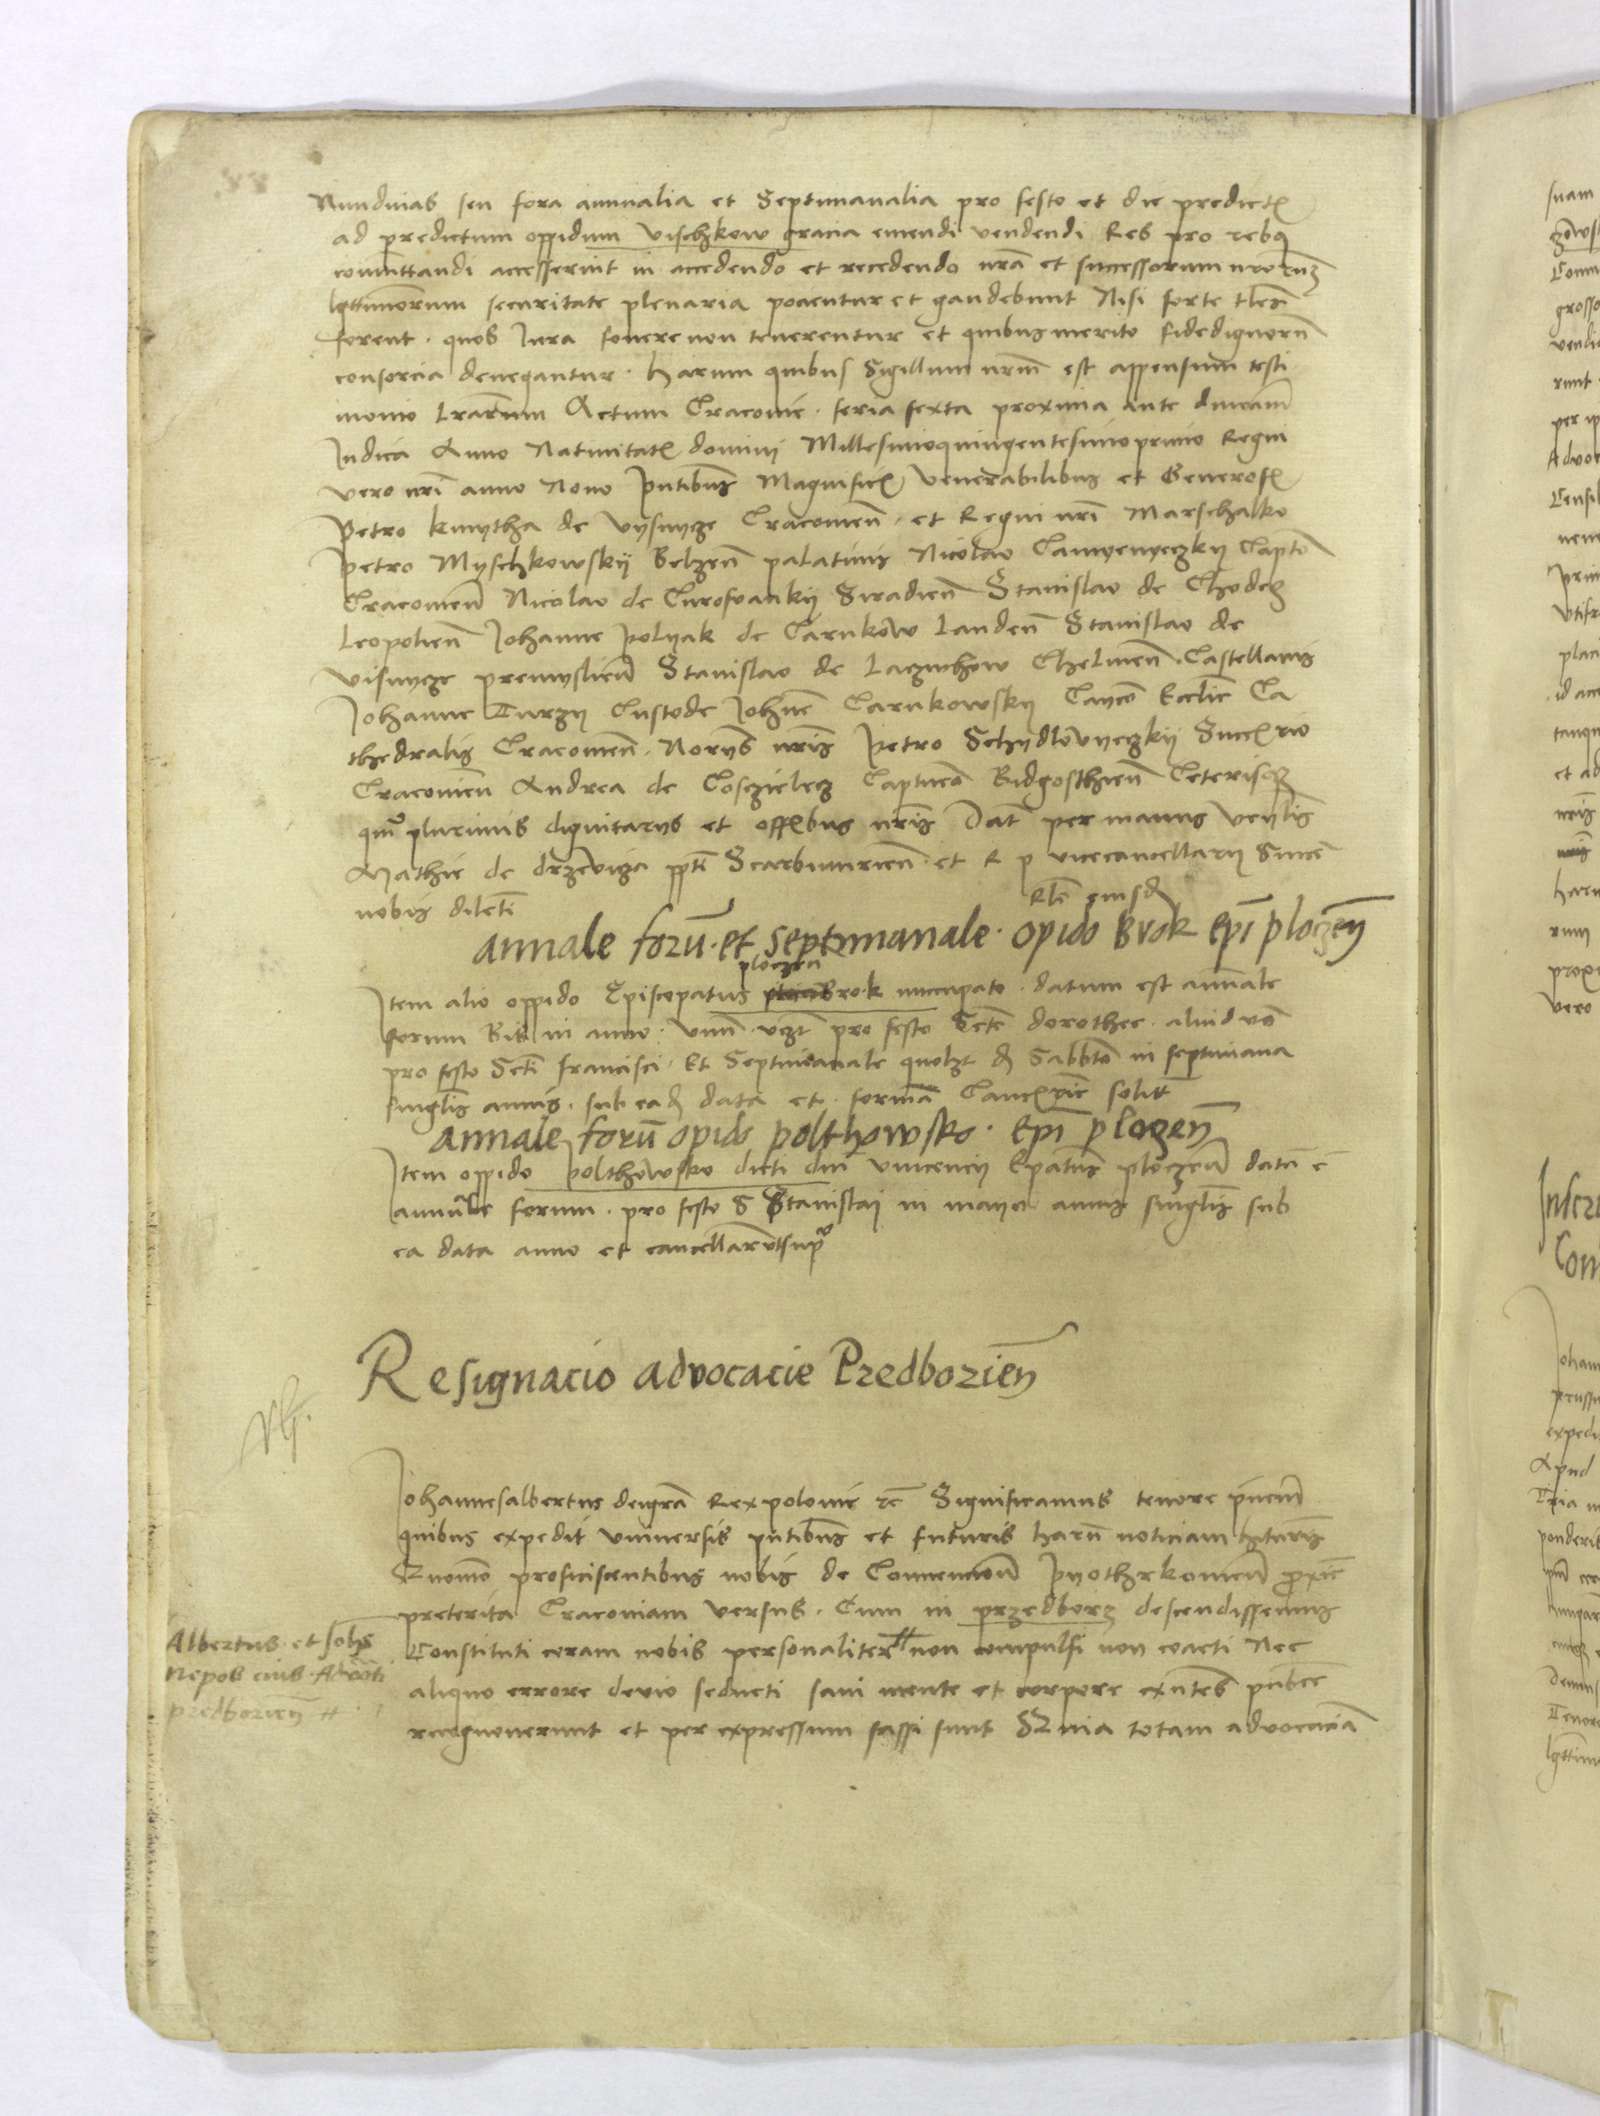 Nundinas seu fora annualia et Septimanalia pro festo et die predictis
ad predictum oppidum Vischkow gracia emendi vendendi Res pro rebus
commuttandi accesserint in accedendo et recedendo nrā et successorum nrorum
lgttimorum securitate plenaria pocientur et gaudebunt Nisi forte tles
forent · quos Iura fovere non tenerentur et quibus merito fidedignorū
consorcia denegantur · Harum quibus Sigillum nrm̄ est appensum testi
monio lrarum Actum Cracovie · feria sexta proxima ante dnicam
Iudica Anno Nativitatis domini Millesimoquingentesimoprimo Regni
vero nri anno Nono pntibus Magnificis Venerabilibus et Generosis
Petro kmytha de Vysnycze Cracovien̄ · et Regni nri Marschalko
Petro Myschkowskij Belzen̄ palatinis Nicolao Camyenyeczkij Capto
Cracovien̄ Nicolao de Curoswankij Siradien̄ Stanislao de Chodecz
Leopolien̄ Johanne Polyak de Carnkow Landen̄ Stanislao de
Visnycze premyslien̄ Stanislao de Lacznchow Chelmen̄ · Castellanis
Johanne Turzy Custode Johne Carnkowsky Canco Ecclie Ca
thedralis Cracovien̄ · Norys nris Petro Schydlovyeczkij Succ̄rio
Cracovien̄ Andrea de Cosczielecz Captneo Bidgosthien̄ Ceterisqz
qm̄ plurimis dignitarys et offibus nris Dat per manus Venlis
Mathie de drzeviza ppti Scarbimirien̄ · et R p vicecancellarij Sincē
nobis dilecti
Rle eiusd
annale forū · et septimanale · opido Brok epi ploczen̄
ploczen
Item alio oppido Episcopatus Brok nuncupato · datum est annale
forum Bis in anno · Unū vzt pro festo Scte dorothee · aliud vo
pro festo Scti francisci · Et Septimanale quolzt d Sabbto in septimana
singlis annis · sub ead data et forma Cancrie solit
annale forū opido polthowsko · epi plozen̄
Item oppido polthowsko dicti dni vincencij Epatus ploczen̄ datū ē
annuale forum · pro festo S Stanislai in mayo annis singlis sub
ea data anno et cancellar utsupra
Resignacio advocacie Predborien̄
Johannesalbertus deigrā Rex polonie rc̄ Significamus tenore pncm̄
quibus expedit universis pntibus et futuris harū noticiam hituris
Quomo proficiscentibus nobis de Convencioñ Pyothrkovien̄ proxie
preterita Cracoviam versus · Cum in przedborz descendissemus
Constituti coram nobis personaliter non compulsi non coacti Nec
Albertus et Johs
Nepos eius · Advoti
predborien̄ #
aliquo errore devio seducti sani mente et corpore existes publice
recognoverunt et per expressum fassi sunt Quia totam advocaciā